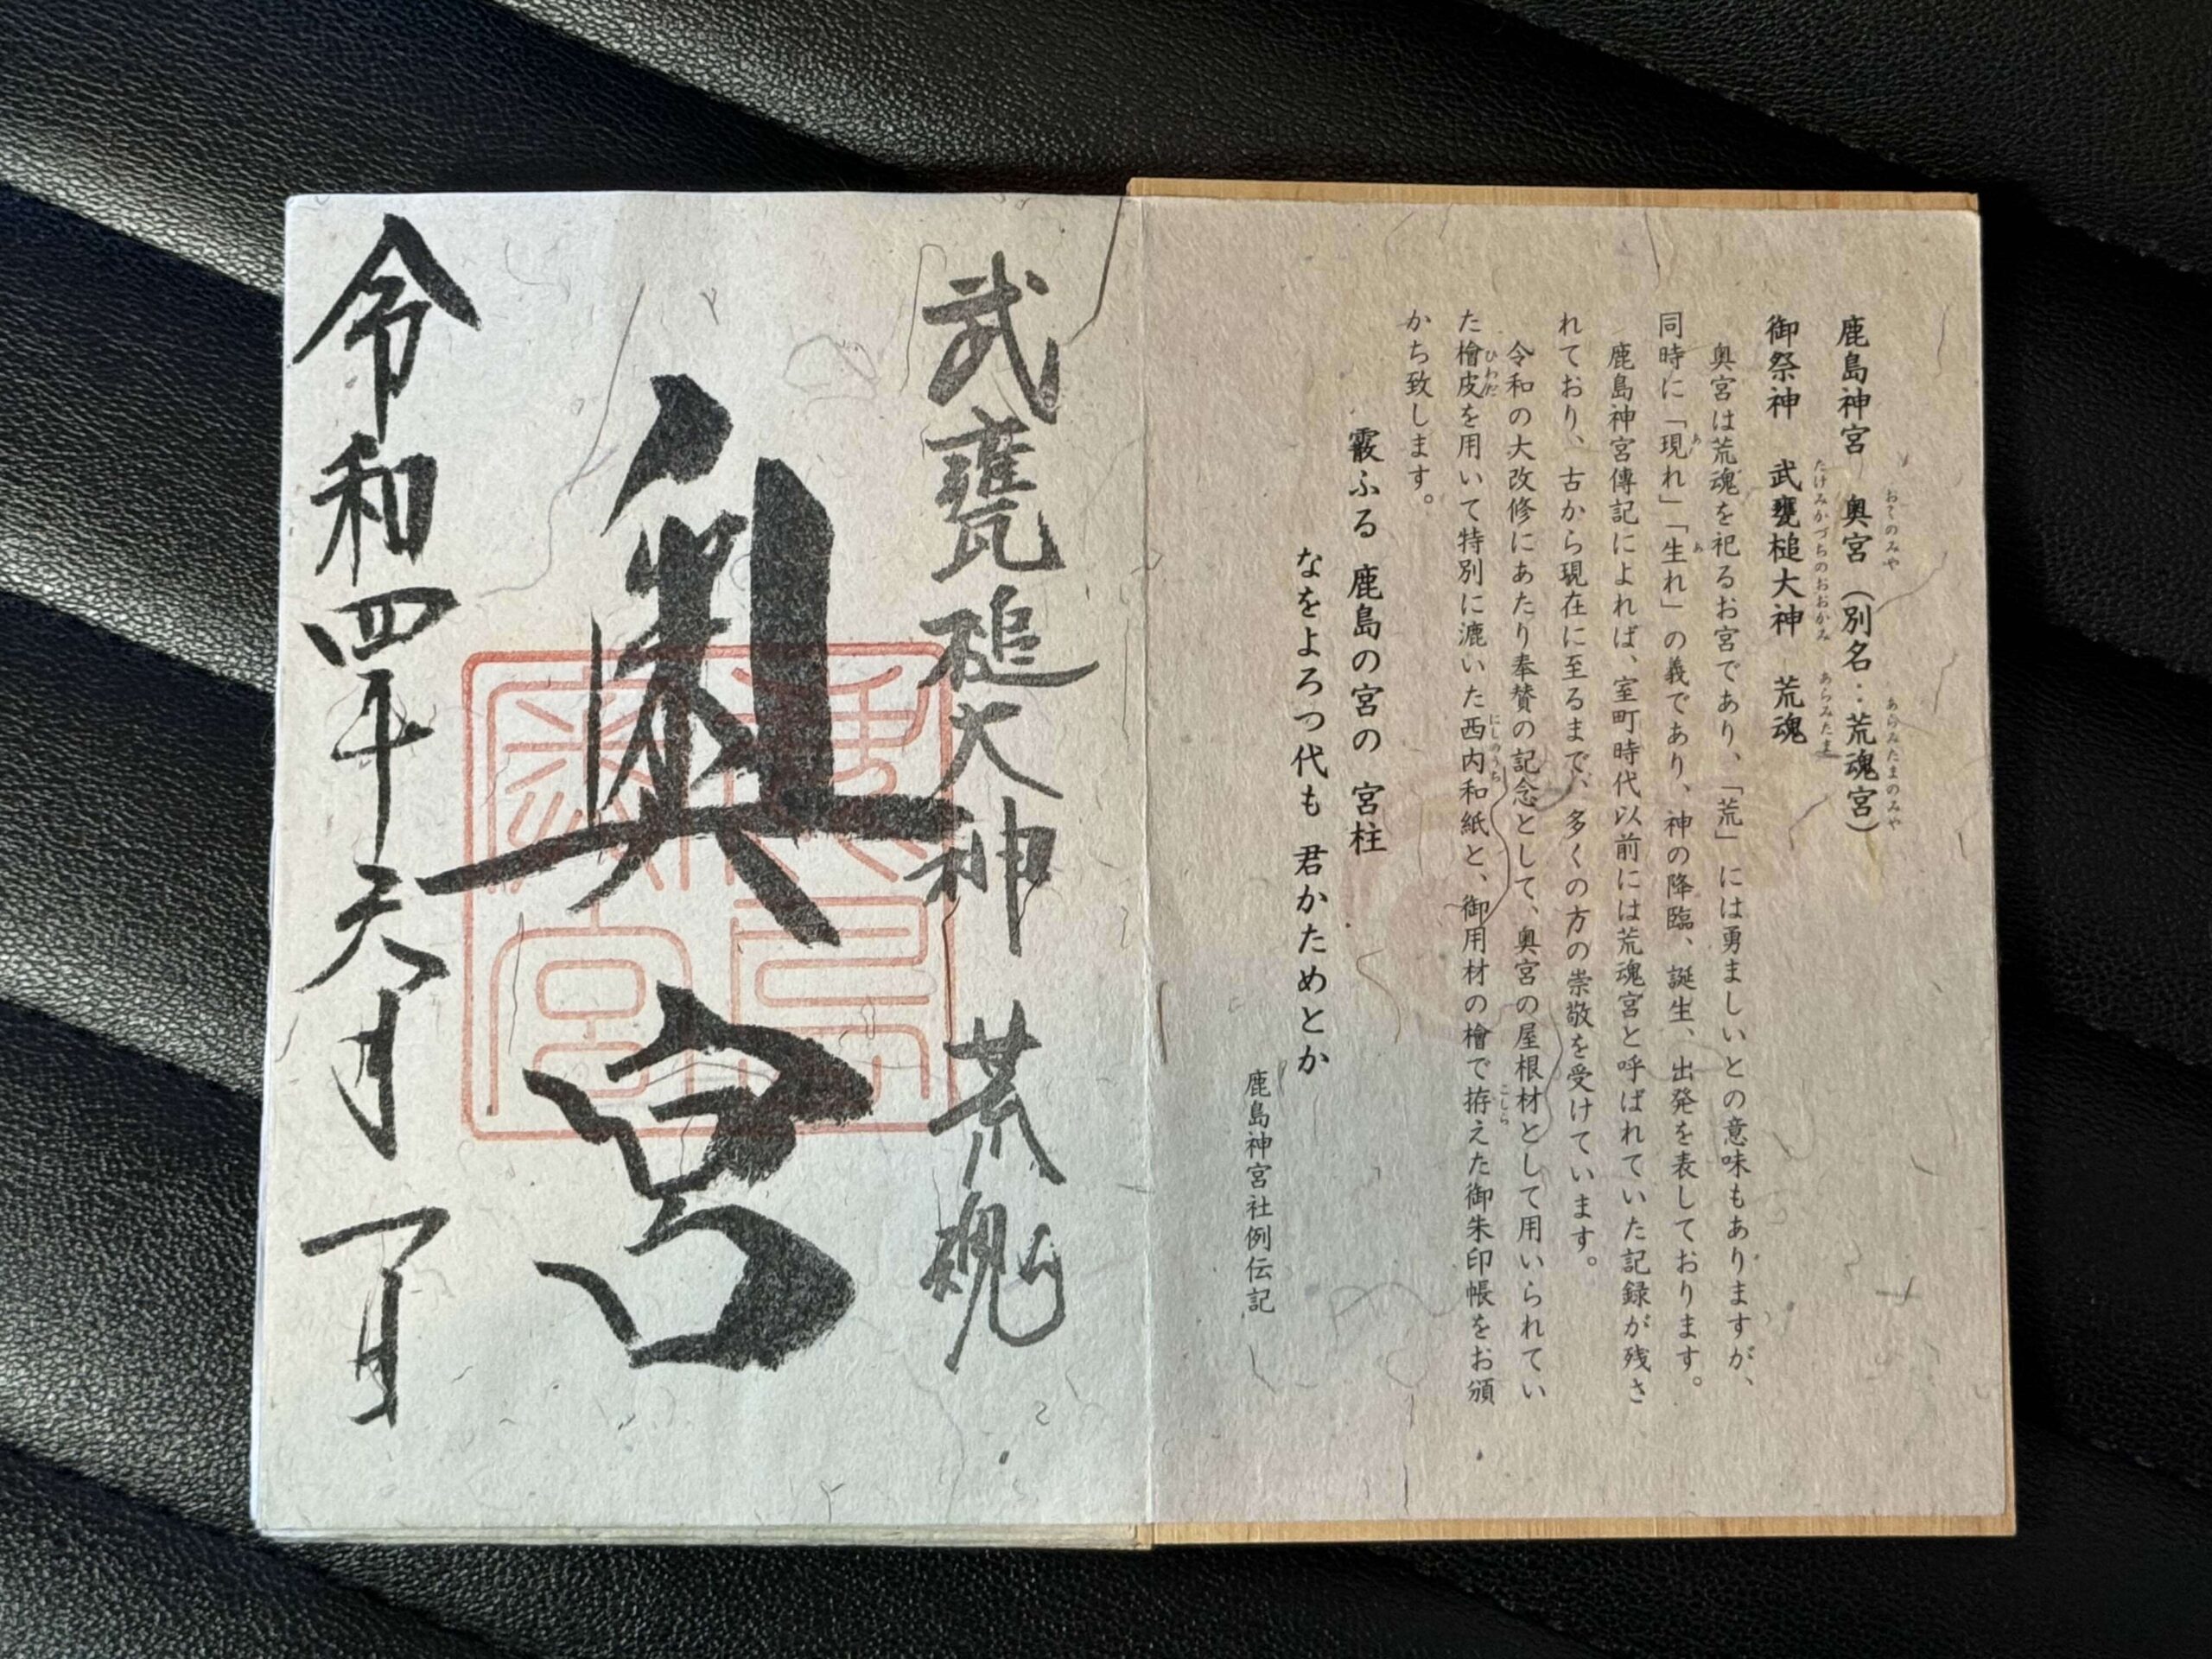 鹿島神宮　奥宮（別名：荒魂宮）
おくのみや
あらみたまのみや
御祭神　武甕槌大神　荒魂
たけみかづちのおおかみ
あらみたま
奥宮は荒魂を祀るお宮であり、「荒」には勇ましいとの意味もありますが、
同時に「現れ」「生れ」の義であり、神の降臨、誕生、出発を表しております。
あ
あ
鹿島神宮傳記によれば、室町時代以前には荒魂宮と呼ばれていた記録が残さ
れており、古から現在に至るまで、多くの方の崇敬を受けています。
令和の大改修にあたり奉賛の記念として、奥宮の屋根材として用いられてい
た檜皮を用いて特別に漉いた西内和紙と、御用材の檜で拵えた御朱印帳をお頒
ひわだ
にしのうち
こしら
かち致します。
霰ふる 鹿島の宮の 宮柱
なをよろつ代も 君かためとか
鹿島神宮社例伝記
武甕槌大神　荒魂
奥宮
令和四年
月